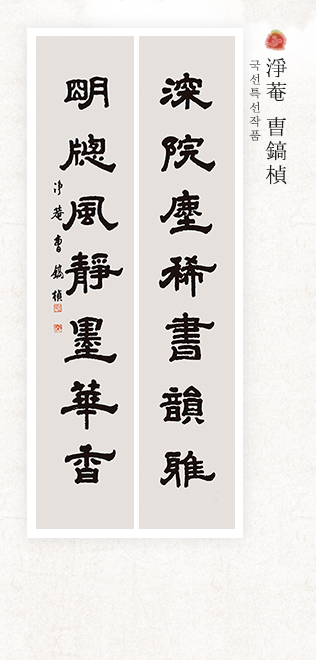 淨菴 曺鎬楨
국선특선작품
深院塵稀書韻雅
明牕風靜墨華香
淨菴 曺鎬楨